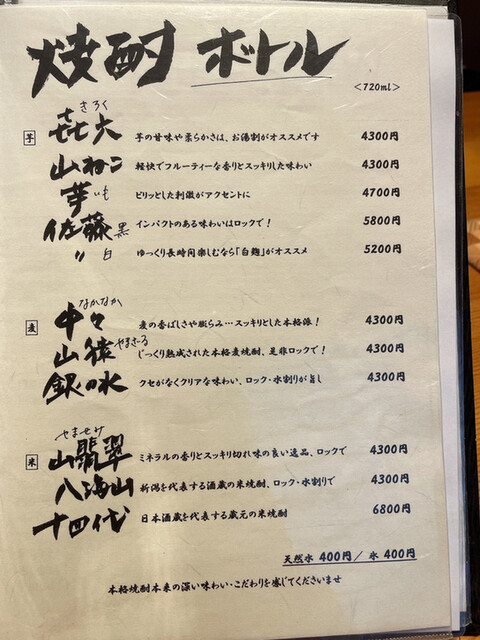 焼酎 ボトル
<720ml>
芋
きろく
㐂六 芋の甘味や柔らかさは、お湯割がオススメです 4300円
山ねこ 軽快でフルーティーな香りとスッキリした味わい 4300円
芋いも ピリッとした刺激がアクセントに 4700円
佐藤 黒 インパクトのある味わいはロックで! 5800円
〃 白 ゆっくり長時間楽しむなら「白麹」がオススメ 5200円
麦
なかなか
中々 麦の香ばしさや膨らみ…スッキリとした本格派! 4300円
山猿 やまざる じっくり熟成された本格麦焼酎、是非ロックで! 4300円
銀の水 クセがなくクリアな味わい、ロック・水割りが旨し 4300円
米
やませみ
山翡翠 ミネラルの香りとスッキリ切れ味の良い逸品、ロックで 4300円
八海山 新潟を代表する酒蔵の米焼酎、ロック・水割りで 4300円
十四代 日本酒蔵を代表する蔵元の米焼酎 6800円
天然水 400円 / 氷 400円
本格焼酎本来の深い味わい・こだわりを感じてくださいませ